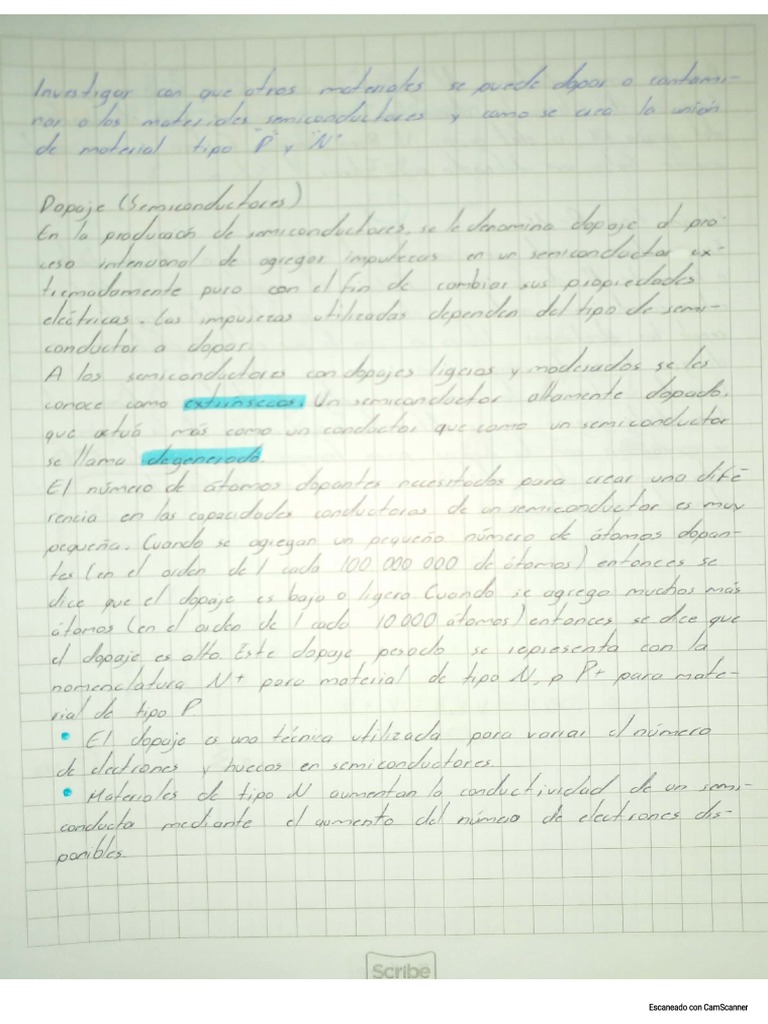 Investigar con que otros materiales se puede dopar o contami-
nar a los materiales semiconductores y como se crea la unión
de material tipo "P" y "N"
Dopaje (Semiconductores)
En la producción de semiconductores, se le denomina dopaje al pro-
ceso intencional de agregar impurezas en un semiconductor ex-
tremadamente puro con el fin de cambiar sus propiedades
eléctricas. Las impurezas utilizadas dependen del tipo de semi-
conductor a dopar.
A los semiconductores con dopajes ligeros y moderados se les
conoce como extrínsecos. Un semiconductor altamente dopado,
que actuá más como un conductor que como un semiconductor
se llama degenerado.
El número de átomos dopantes necesitados para crear una dife-
rencia en las capacidades conductoras de un semiconductor es muy
pequeña. Cuando se agregan un pequeño número de átomos dopan-
tes (en el orden de 1 cada 100 000 000 de átomos) entonces se
dice que el dopaje es bajo o ligero. Cuando se agrega muchos más
átomos (en el orden de 1 cada 10.000 átomos) entonces se dice que
el dopaje es alto. Este dopaje pesado se representa con la
nomenclatura N+ para material de tipo N, o P+ para mate-
rial de tipo P
• El dopaje es una técnica utilizada para variar el número
de electrones y huecos en semiconductores.
• Materiales de tipo N aumentan la conductividad de un semi-
conducto mediante el aumento del número de electrones dis-
ponibles.
Scribe
Escaneado con CamScanner